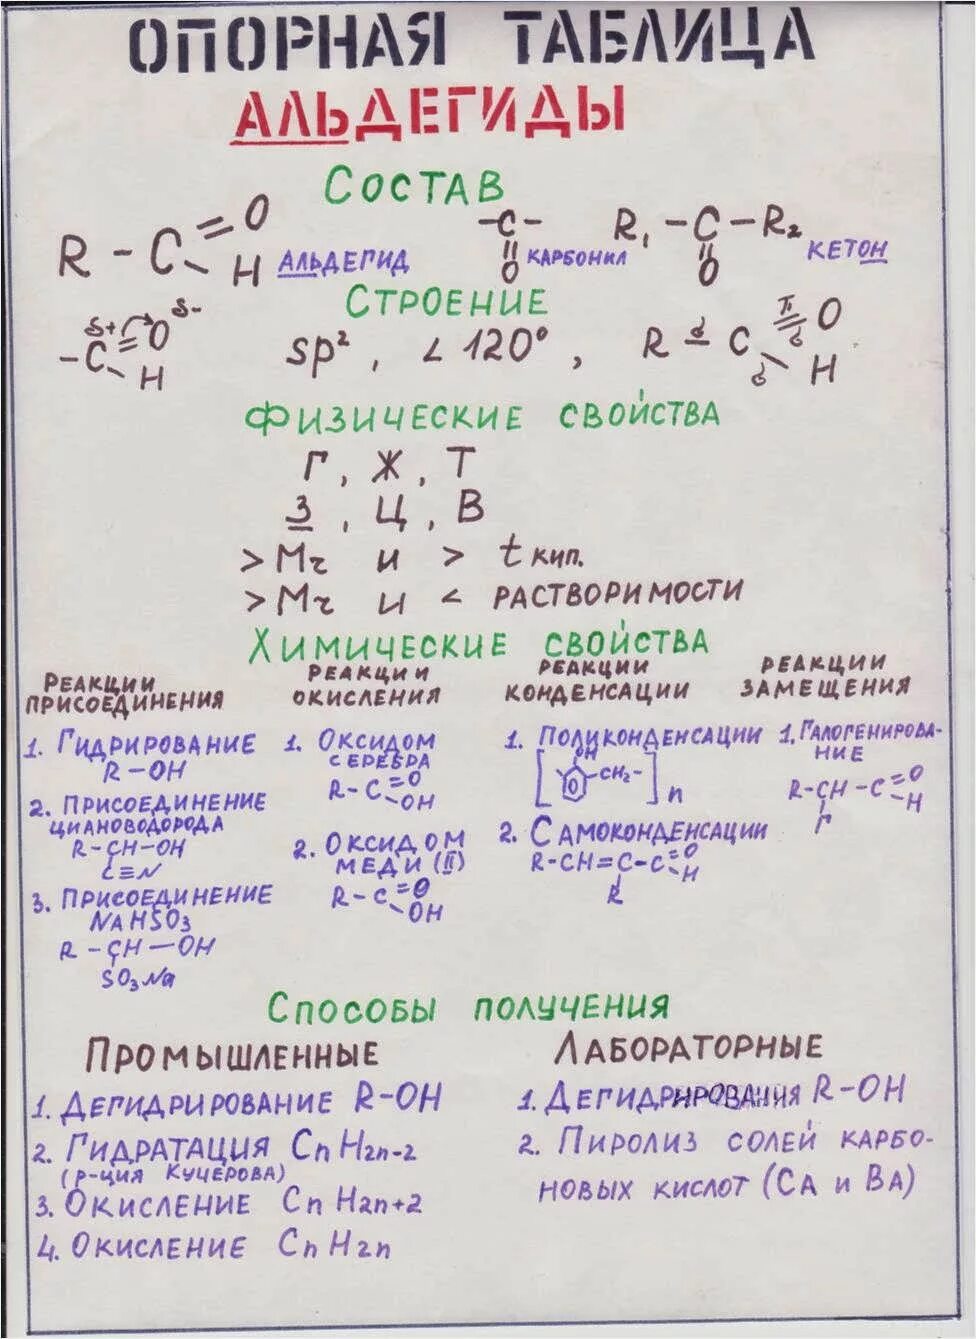 ОПОРНАЯ ТАБЛИЦА
АЛЬДЕГИДЫ
СОСТАВ
R - C = O
H АЛЬДЕГИД
- C -
|| O КАРБОНИЛ
R₁ - C - R₂
|| O КЕТОН
СТРОЕНИЕ
δ+ δ-
- C = O
H
sp², ∠120°,
R - C = O
H
σ π σ σ
ФИЗИЧЕСКИЕ СВОЙСТВА
Г, Ж, Т
З, Ц, В
> Mг и > t кип.
> Mг и < РАСТВОРИМОСТИ
ХИМИЧЕСКИЕ СВОЙСТВА
РЕАКЦИИ
ПРИСОЕДИНЕНИЯ
1. ГИДРИРОВАНИЕ
R-OH
2. ПРИСОЕДИНЕНИЕ
ЦИАНОВОДОРОДА
R-CH-OH
C≡N
3. ПРИСОЕДИНЕНИЕ
NAHSO3
R-CH-OH
SO₃Na
РЕАКЦИИ
ОКИСЛЕНИЯ
1. ОКСИДОМ
СЕРЕБРА
R-C=O
OH
2. ОКСИДОМ
МЕДИ (II)
R-C=O
OH
РЕАКЦИИ
КОНДЕНСАЦИИ
1. ПОЛИКОНДЕНСАЦИИ
OH
[ -CH₂- ]n
2. САМОКОНДЕНСАЦИИ
R-CH=C-C=O
H
R
РЕАКЦИИ
ЗАМЕЩЕНИЯ
1. ГАЛОГЕНИРОВА-
НИЕ
R-CH-C=O
H
Г
СПОСОБЫ ПОЛУЧЕНИЯ
ПРОМЫШЛЕННЫЕ
1. ДЕГИДРИРОВАНИЕ R-OH
2. ГИДРАТАЦИЯ CnH2n-2
(Р-ЦИЯ КУЧЕРОВА)
3. ОКИСЛЕНИЕ CnH2n+2
4. ОКИСЛЕНИЕ CnH2n
ЛАБОРАТОРНЫЕ
1. ДЕГИДРИРОВАНИЯ R-OH
2. ПИРОЛИЗ СОЛЕЙ КАРБО-
НОВЫХ КИСЛОТ (CA И BA)